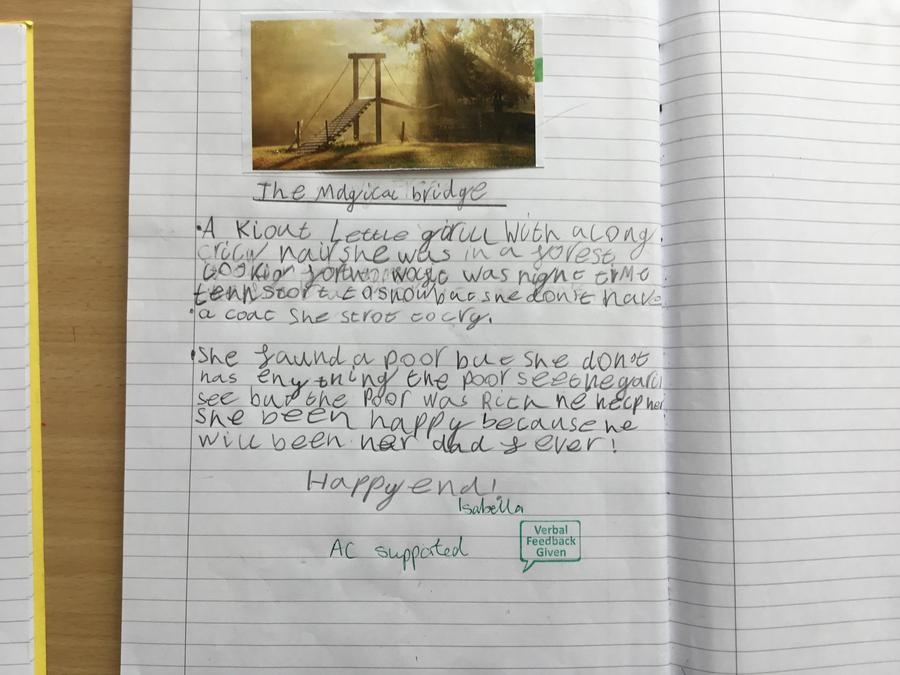 The Magical bridge
•A Kiout Lettle girll With a long
crlcly hair she was in a forest
was night time
stort to snow but she don't have
•a coat she strot to cry.
•She faund a poor but she don't
has eny thing the poor see the garll
see but the Poor was Rich he help her
She been happy because he
will been her dad f ever!
Happy end!
Isabella
AC supported
Verbal
Feedback
Given